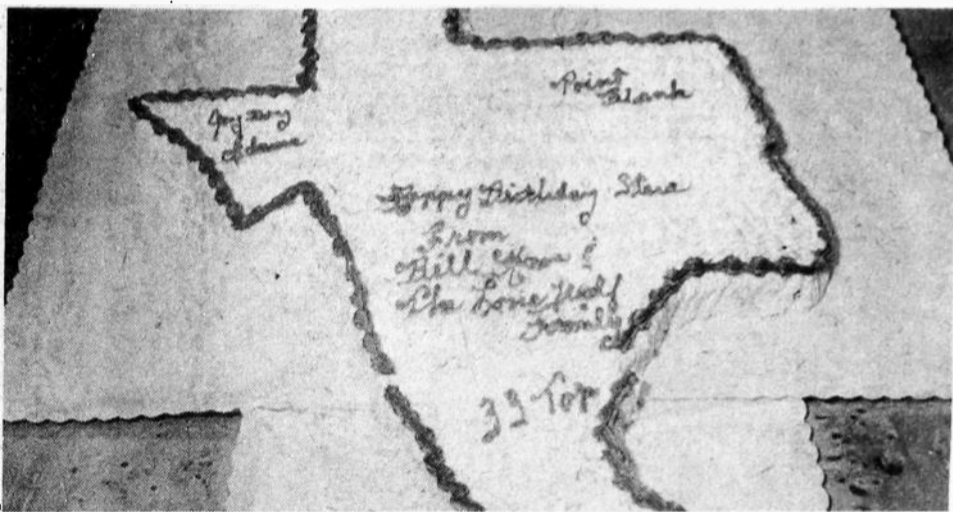 Point
Blank
Jay Boy
Adams
Happy Birthday Steve
From
Bill Ham &
The Lone Wolf
Family
ZZ Top